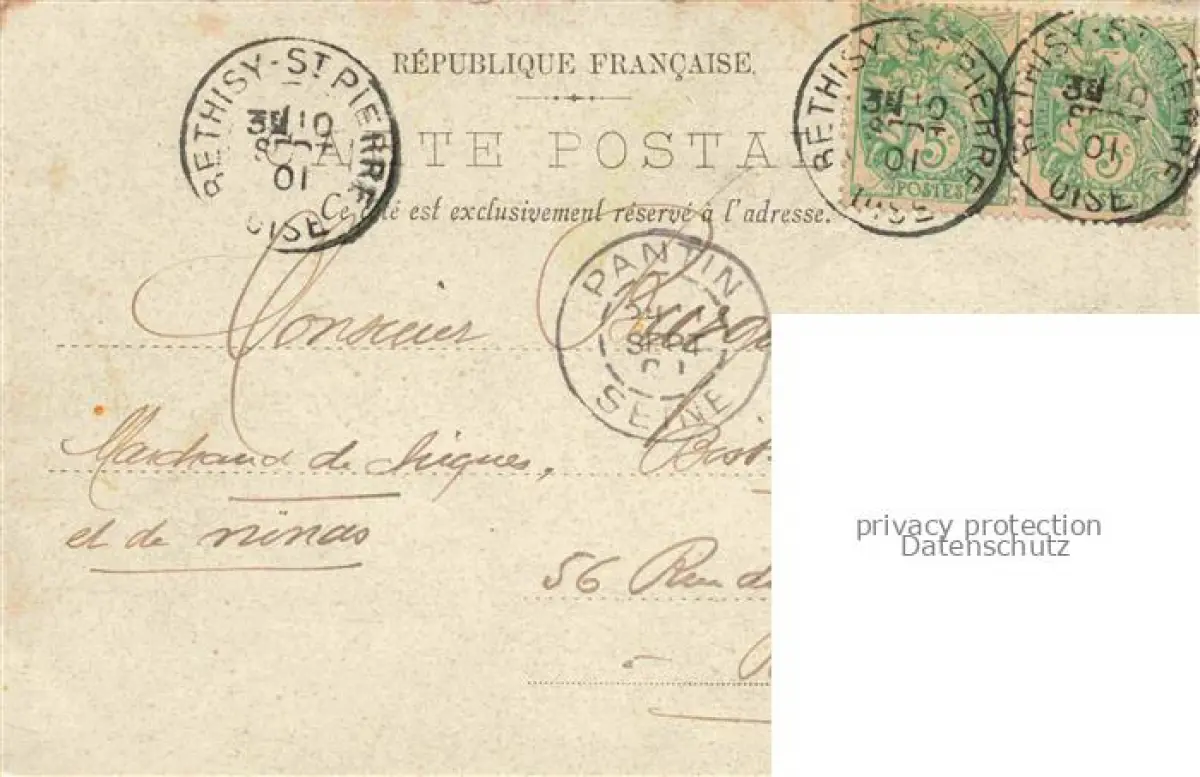 RÉPUBLIQUE FRANÇAISE
CARTE POSTALE
Ce côté est exclusivement réservé à l'adresse.
BETHISY-ST PIERRE
10
SEPT
01
OISE
BETHISY-ST PIERRE
10
01
OISE
5c
POSTES
BETHISY-ST PIERRE
10
01
OISE
5c
PANTIN
SEPT
01
SEINE
Monsieur
Marchand de chiques,
et de ninas
56 Rue d
à
privacy protection
Datenschutz